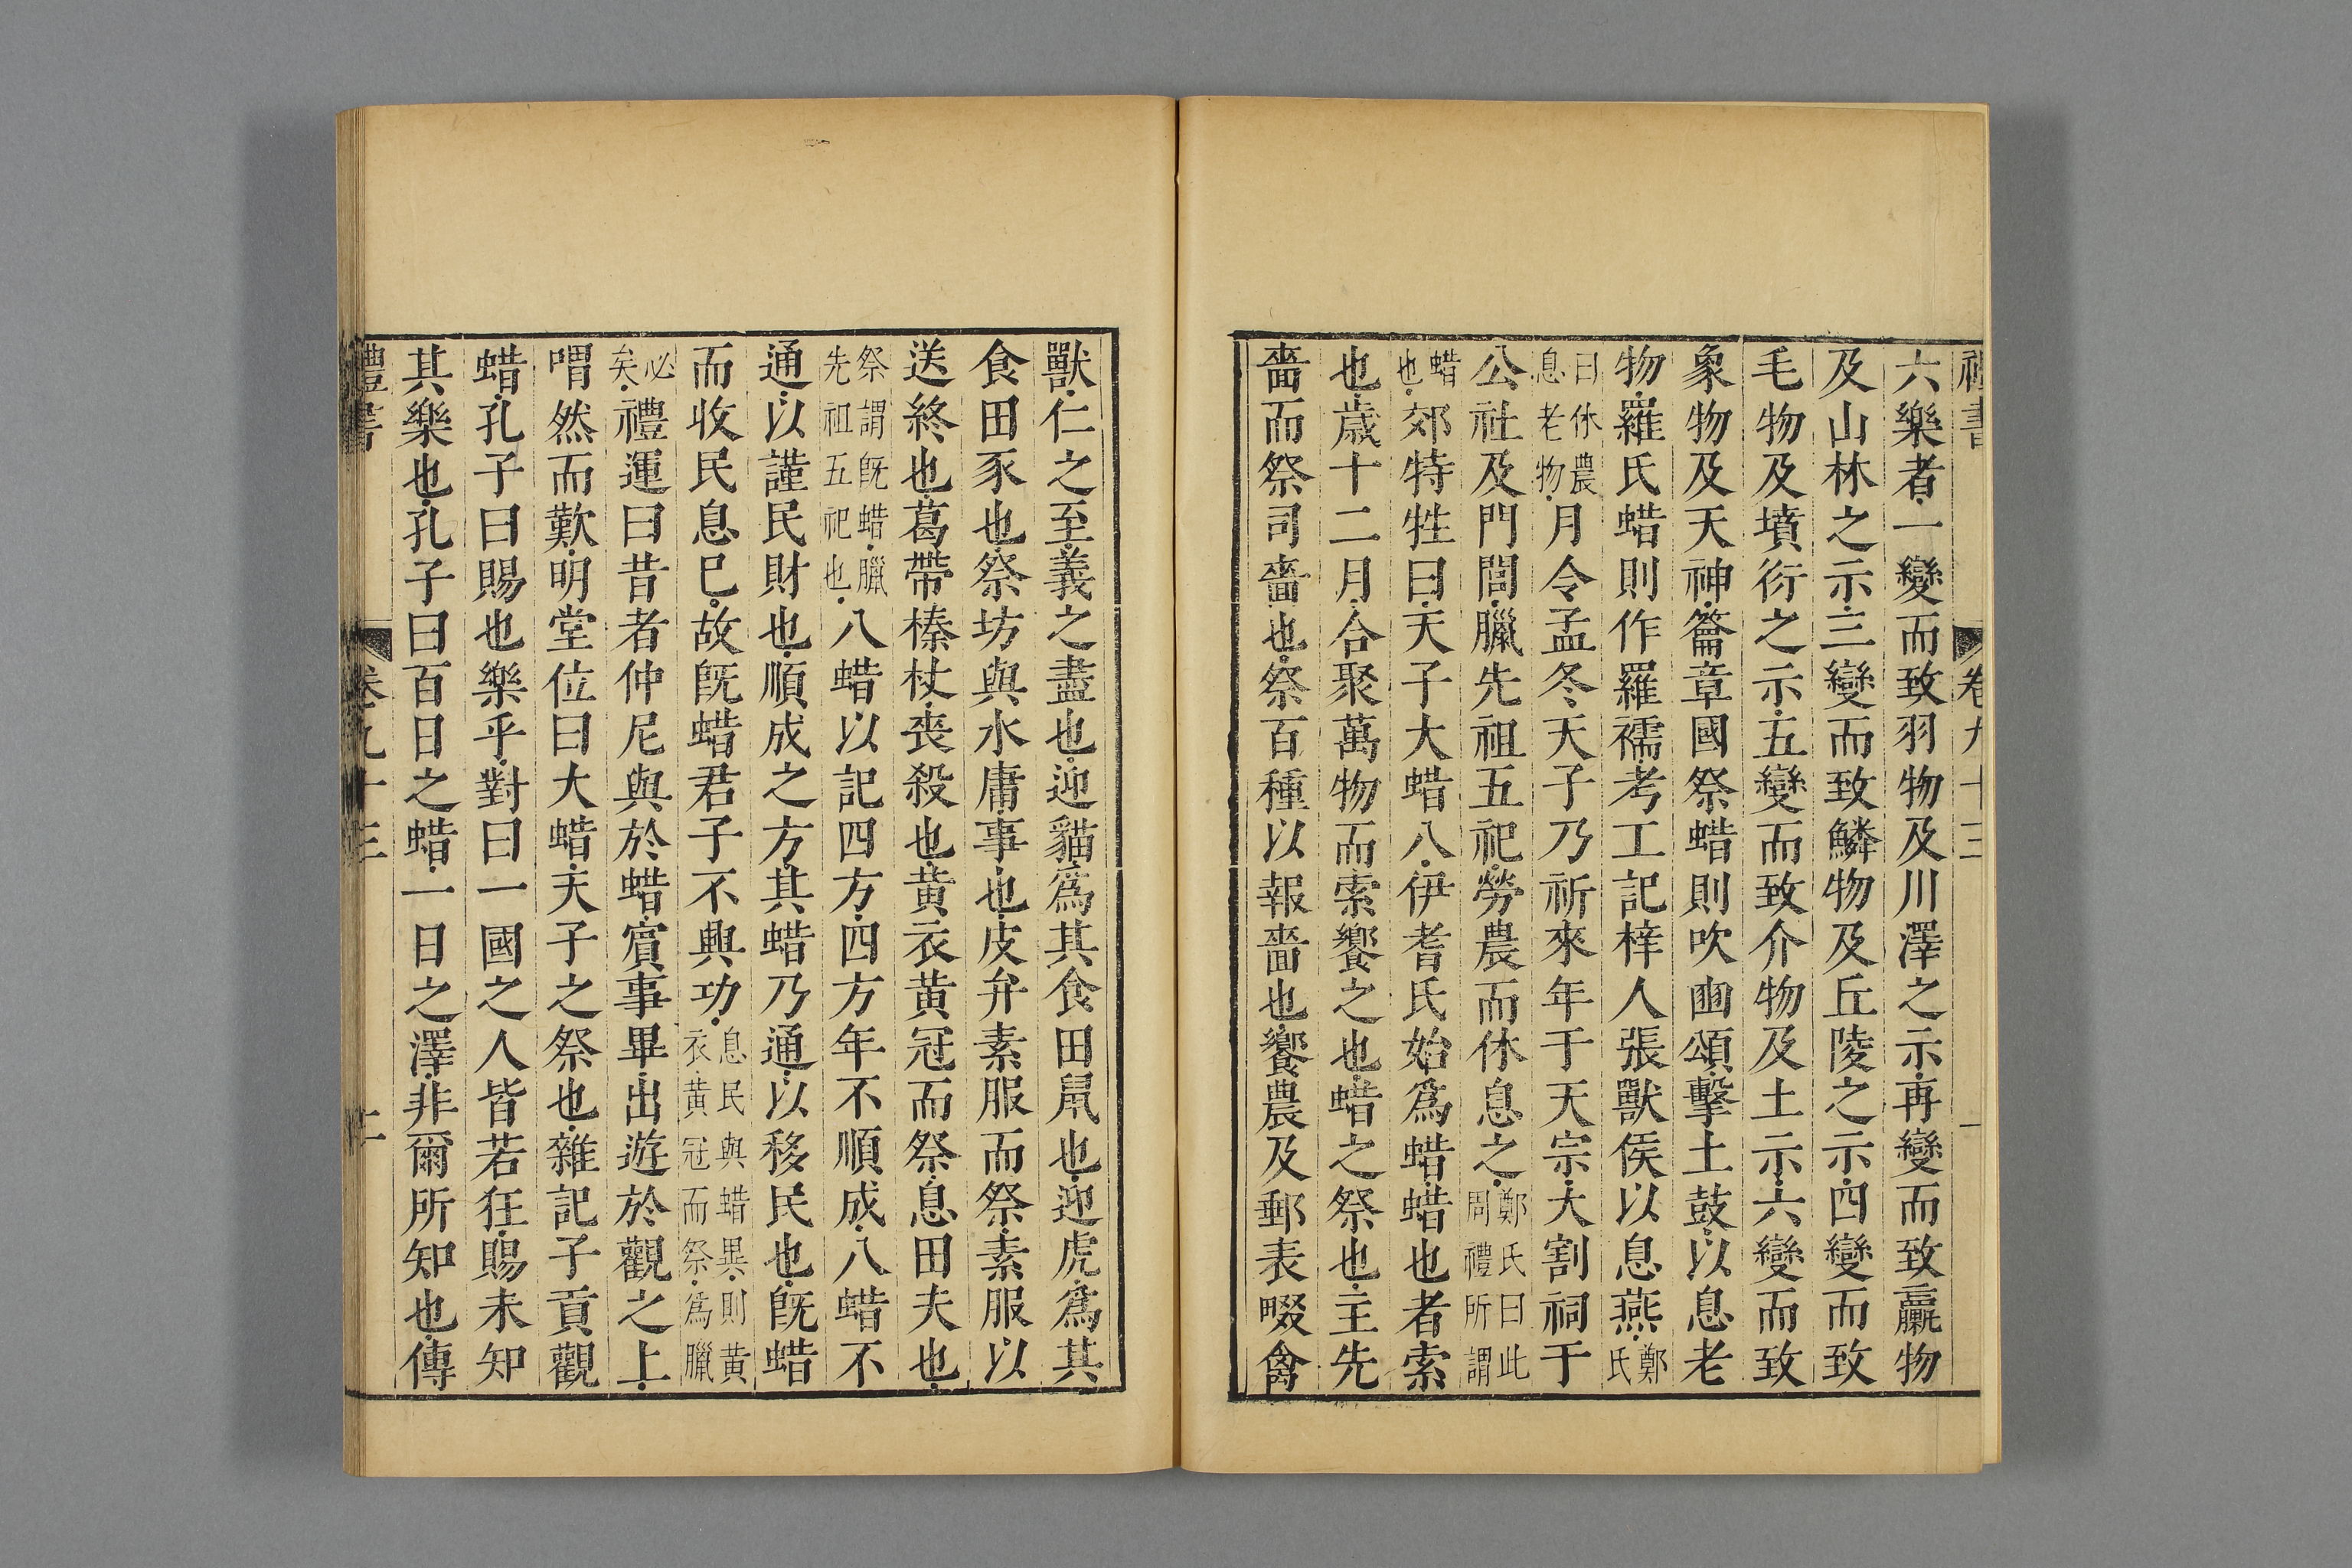 禮書 卷九十三 一
六樂者一變而致羽物及川澤之示再變而致臝物
及山林之示三變而致鱗物及丘陵之示四變而致
毛物及墳衍之示五變而致介物及土示六變而致
象物及天神籥章國祭蜡則吹豳頌擊土鼓以息老
物羅氏蜡則作羅襦考工記梓人張獸侯以息燕鄭氏
曰休農息老物月令孟冬天子乃祈來年于天宗大割祠于
公社及門閭臘先祖五祀勞農而休息之鄭氏曰此周禮所謂
蜡也郊特牲曰天子大蜡八伊耆氏始爲蜡蜡也者索
也歲十二月合聚萬物而索饗之也蜡之祭也主先
嗇而祭司嗇也祭百種以報嗇也饗農及郵表畷禽
獸仁之至義之盡也迎貓爲其食田鼠也迎虎爲其
食田豕也祭坊與水庸事也皮弁素服而祭素服以
送終也葛帶榛杖喪殺也黃衣黃冠而祭息田夫也
祭謂旣蜡臘先祖五祀也八蜡以記四方四方年不順成八蜡不
通以謹民財也順成之方其蜡乃通以移民也旣蜡
而收民息已故旣蜡君子不興功息民與蜡異則黃衣黃冠而祭爲臘
必矣禮運曰昔者仲尼與於蜡賓事畢出遊於觀之上
喟然而歎明堂位曰大蜡天子之祭也雜記子貢觀
蜡孔子曰賜也樂乎對曰一國之人皆若狂賜未知
其樂也孔子曰百日之蜡一日之澤非爾所知也傳
禮書 卷九十三